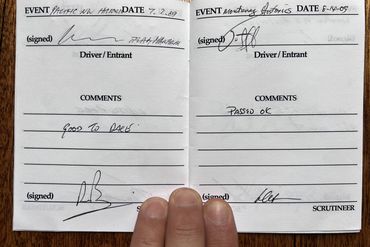 EVENT PACIFIC NW HISTORIC DATE 7.2.09
(signed)
Driver / Entrant
COMMENTS
GOOD TO RACE.
(signed)
SC
EVENT Monterey Historics DATE 8-14-09
(signed)
Driver / Entrant
COMMENTS
PASSED OK
(signed)
SCRUTINEER